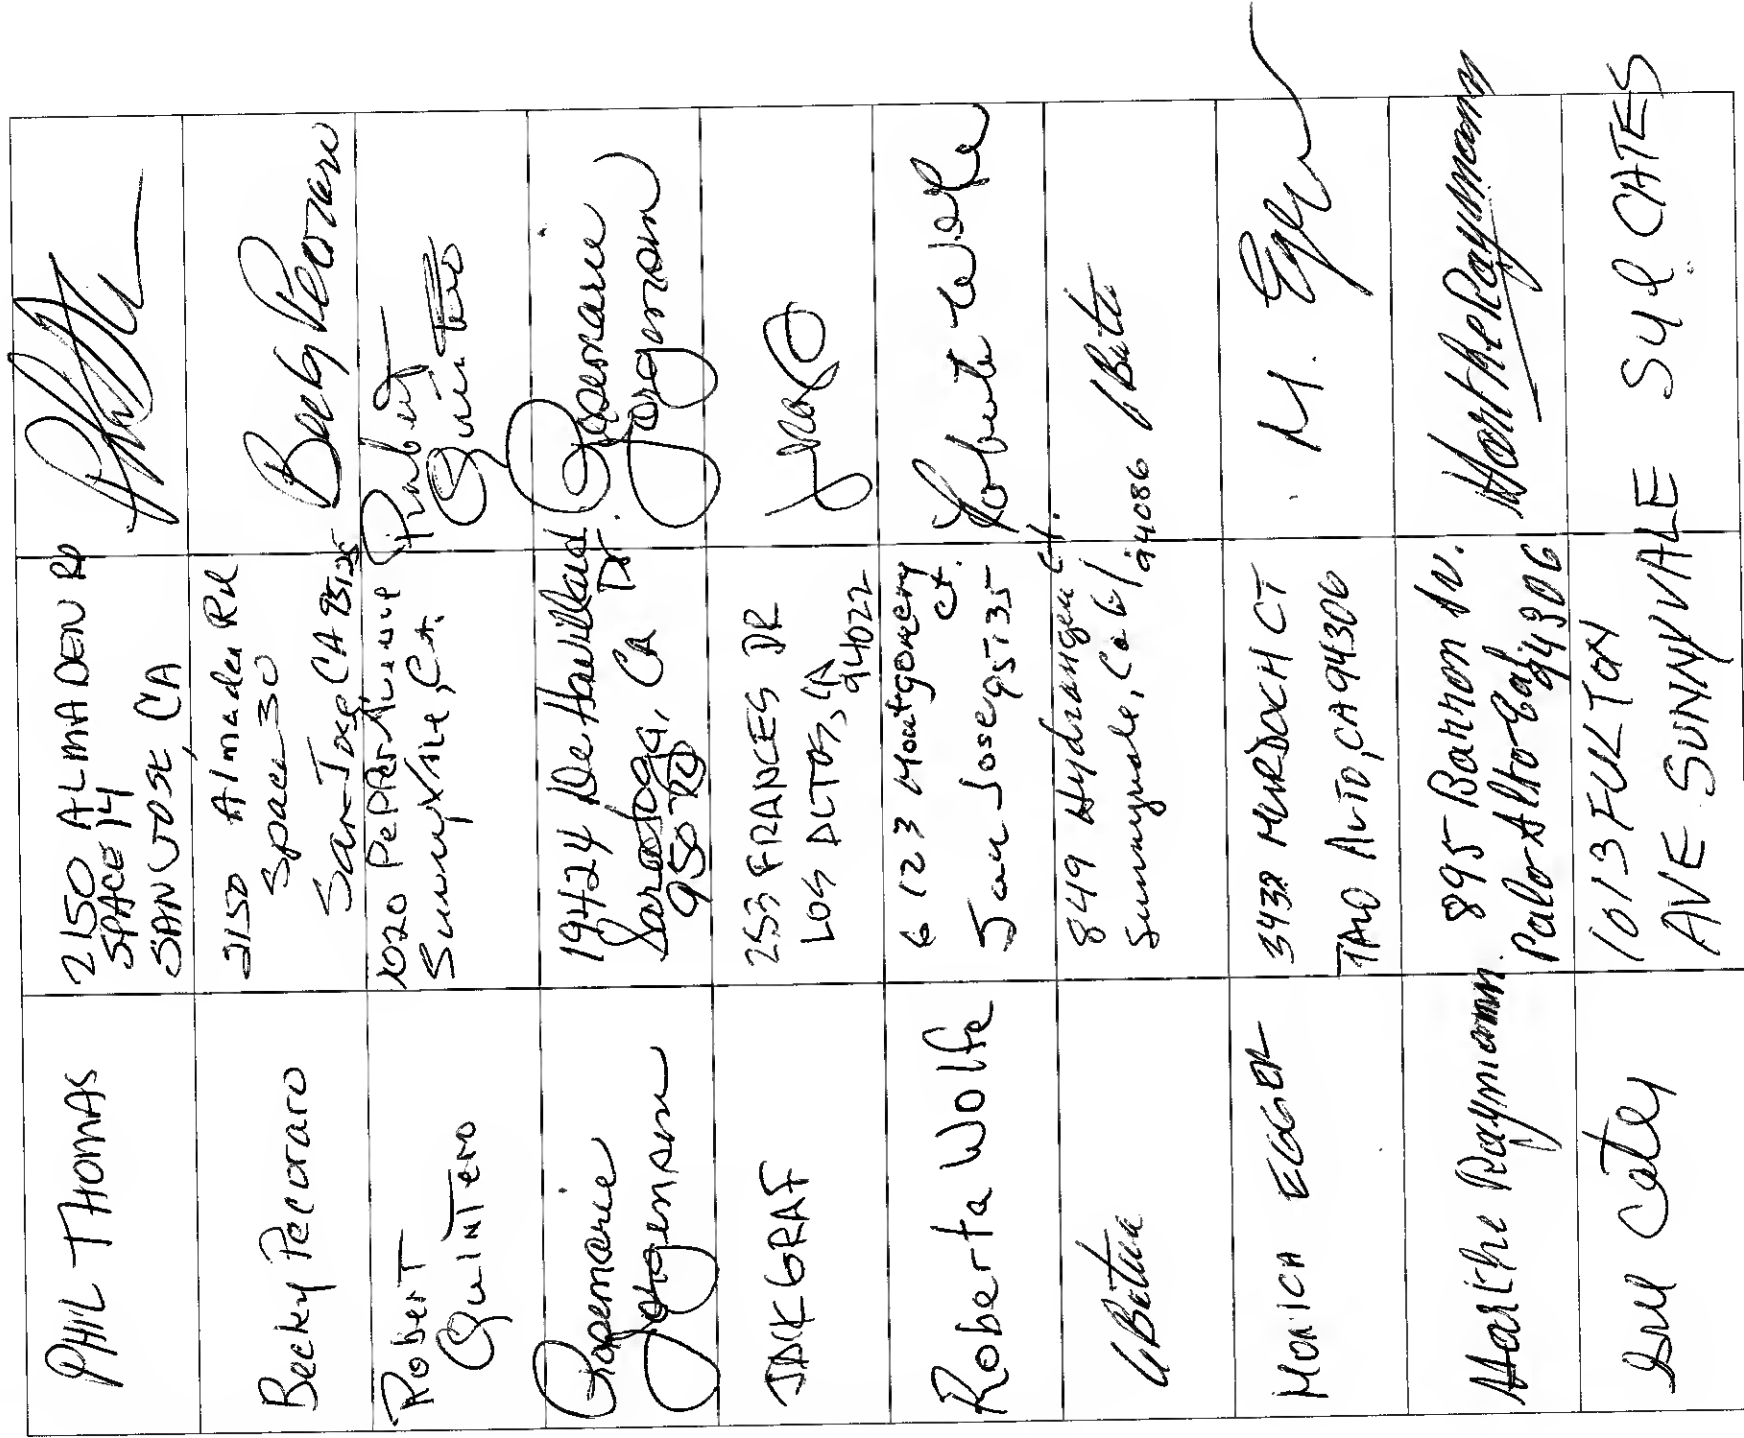 PHIL THOMAS
2150 ALMADEN RD
SPACE 14
SAN JOSE, CA
Becky Pecoraro
2150 Almaden Rd
Space 30
San Jose, CA 95125
Becky Pecoraro
Robert
Quintero
1020 Pepper Avenue
Sunnyvale, Ca.
Robert
Quintero
Rosemarie
Jorgensen
19424 De Havilland
Dr.
Saratoga, CA
95070
Rosemarie
Jorgensen
JACK GRAF
253 FRANCES DR
LOS ALTOS, CA
94022
Roberta Wolfe
6123 Montgomery
Ct.
San Jose 95135
Roberta Wolfe
849 Hydrangea Ct.
Sunnyvale, Calif
94086
MONICA EGGER
3432 MURDOCH CT
PALO ALTO, CA 94306
M. Egger
Marthe Raymann
895 Barron Av.
Palo Alto Cal
94306
Marthe Raymann
Cates
1013 FULTON
AVE SUNNYVALE
CATES